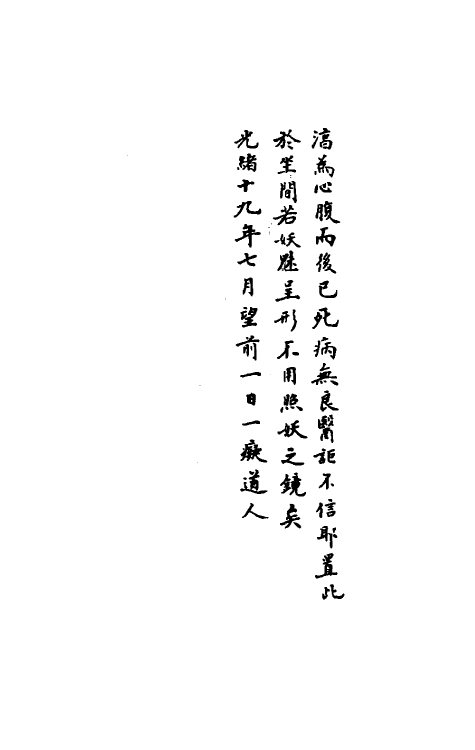 滈為心腹而後已死病無良醫詎不信耶置此
於坐間若妖魅呈形不用照妖之鏡矣
光緒十九年七月望前一日一癡道人